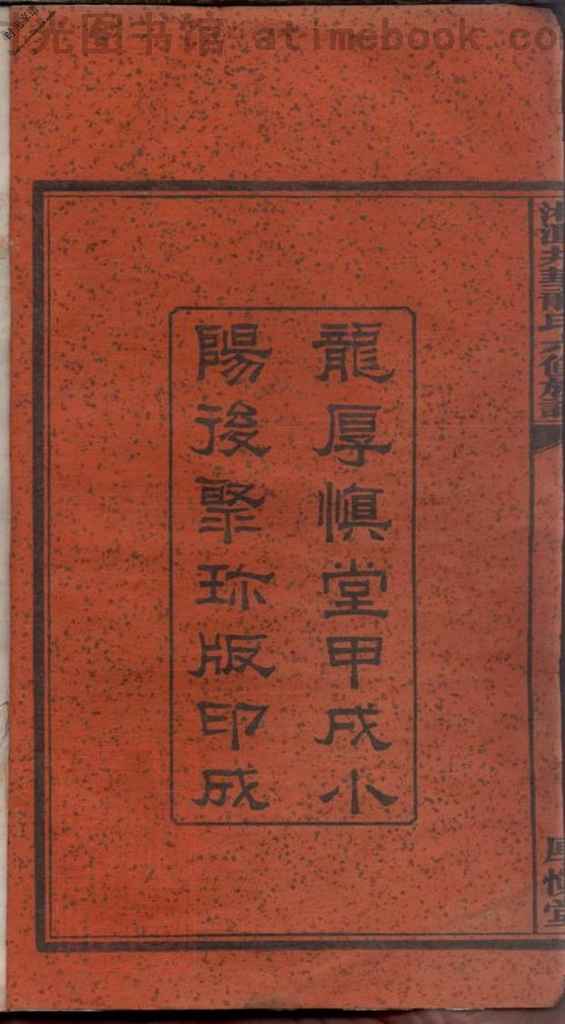 光图书馆 atimebook.co
龍厚慎堂甲戌小
陽後聚珍版印成
厚慎堂